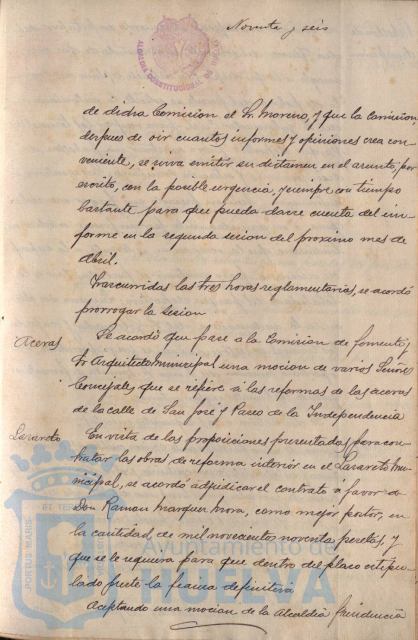 Noventa y seis
ALCALDIA CONSTITUCIONAL DE HUELVA
de dicha Comision el Sr. Moreno, y que la Comision,
despues de oir cuantos informes y opiniones crea con-
veniente, se sirva emitir su dictamen en el asunto, por
escrito, con la posible urgencia, y siempre con tiempo
bastante para que pueda darse cuenta del in-
forme en la segunda sesion del proximo mes de
Abril.
Trascurridas las tres horas reglamentarias, se acordó
prorrogar la sesion
Aceras
Se acordó que pase a la Comision de fomento y
Sr Arquitecto Municipal una mocion de varios Señores
Concejales, que se refiere á las reformas de las aceras
de la calle de San José y Paseo de la Independencia
Lazareto
En vista de las proposiciones presentadas para con-
tratar las obras de reforma interior en el Lazareto Mu-
nicipal, se acordó adjudicar el contrato á favor de
Don Ramon Marquez Mora, como mejor postor, en
la cantidad de mil novecientos noventa pesetas, y
que se le requiera para que dentro del plazo estipu-
lado preste la fianza definitiva
Aceptando una mocion de la Alcaldia Presidencia
PORTUS MARIS
ET TERRE
Ayuntamiento de
HUELVA